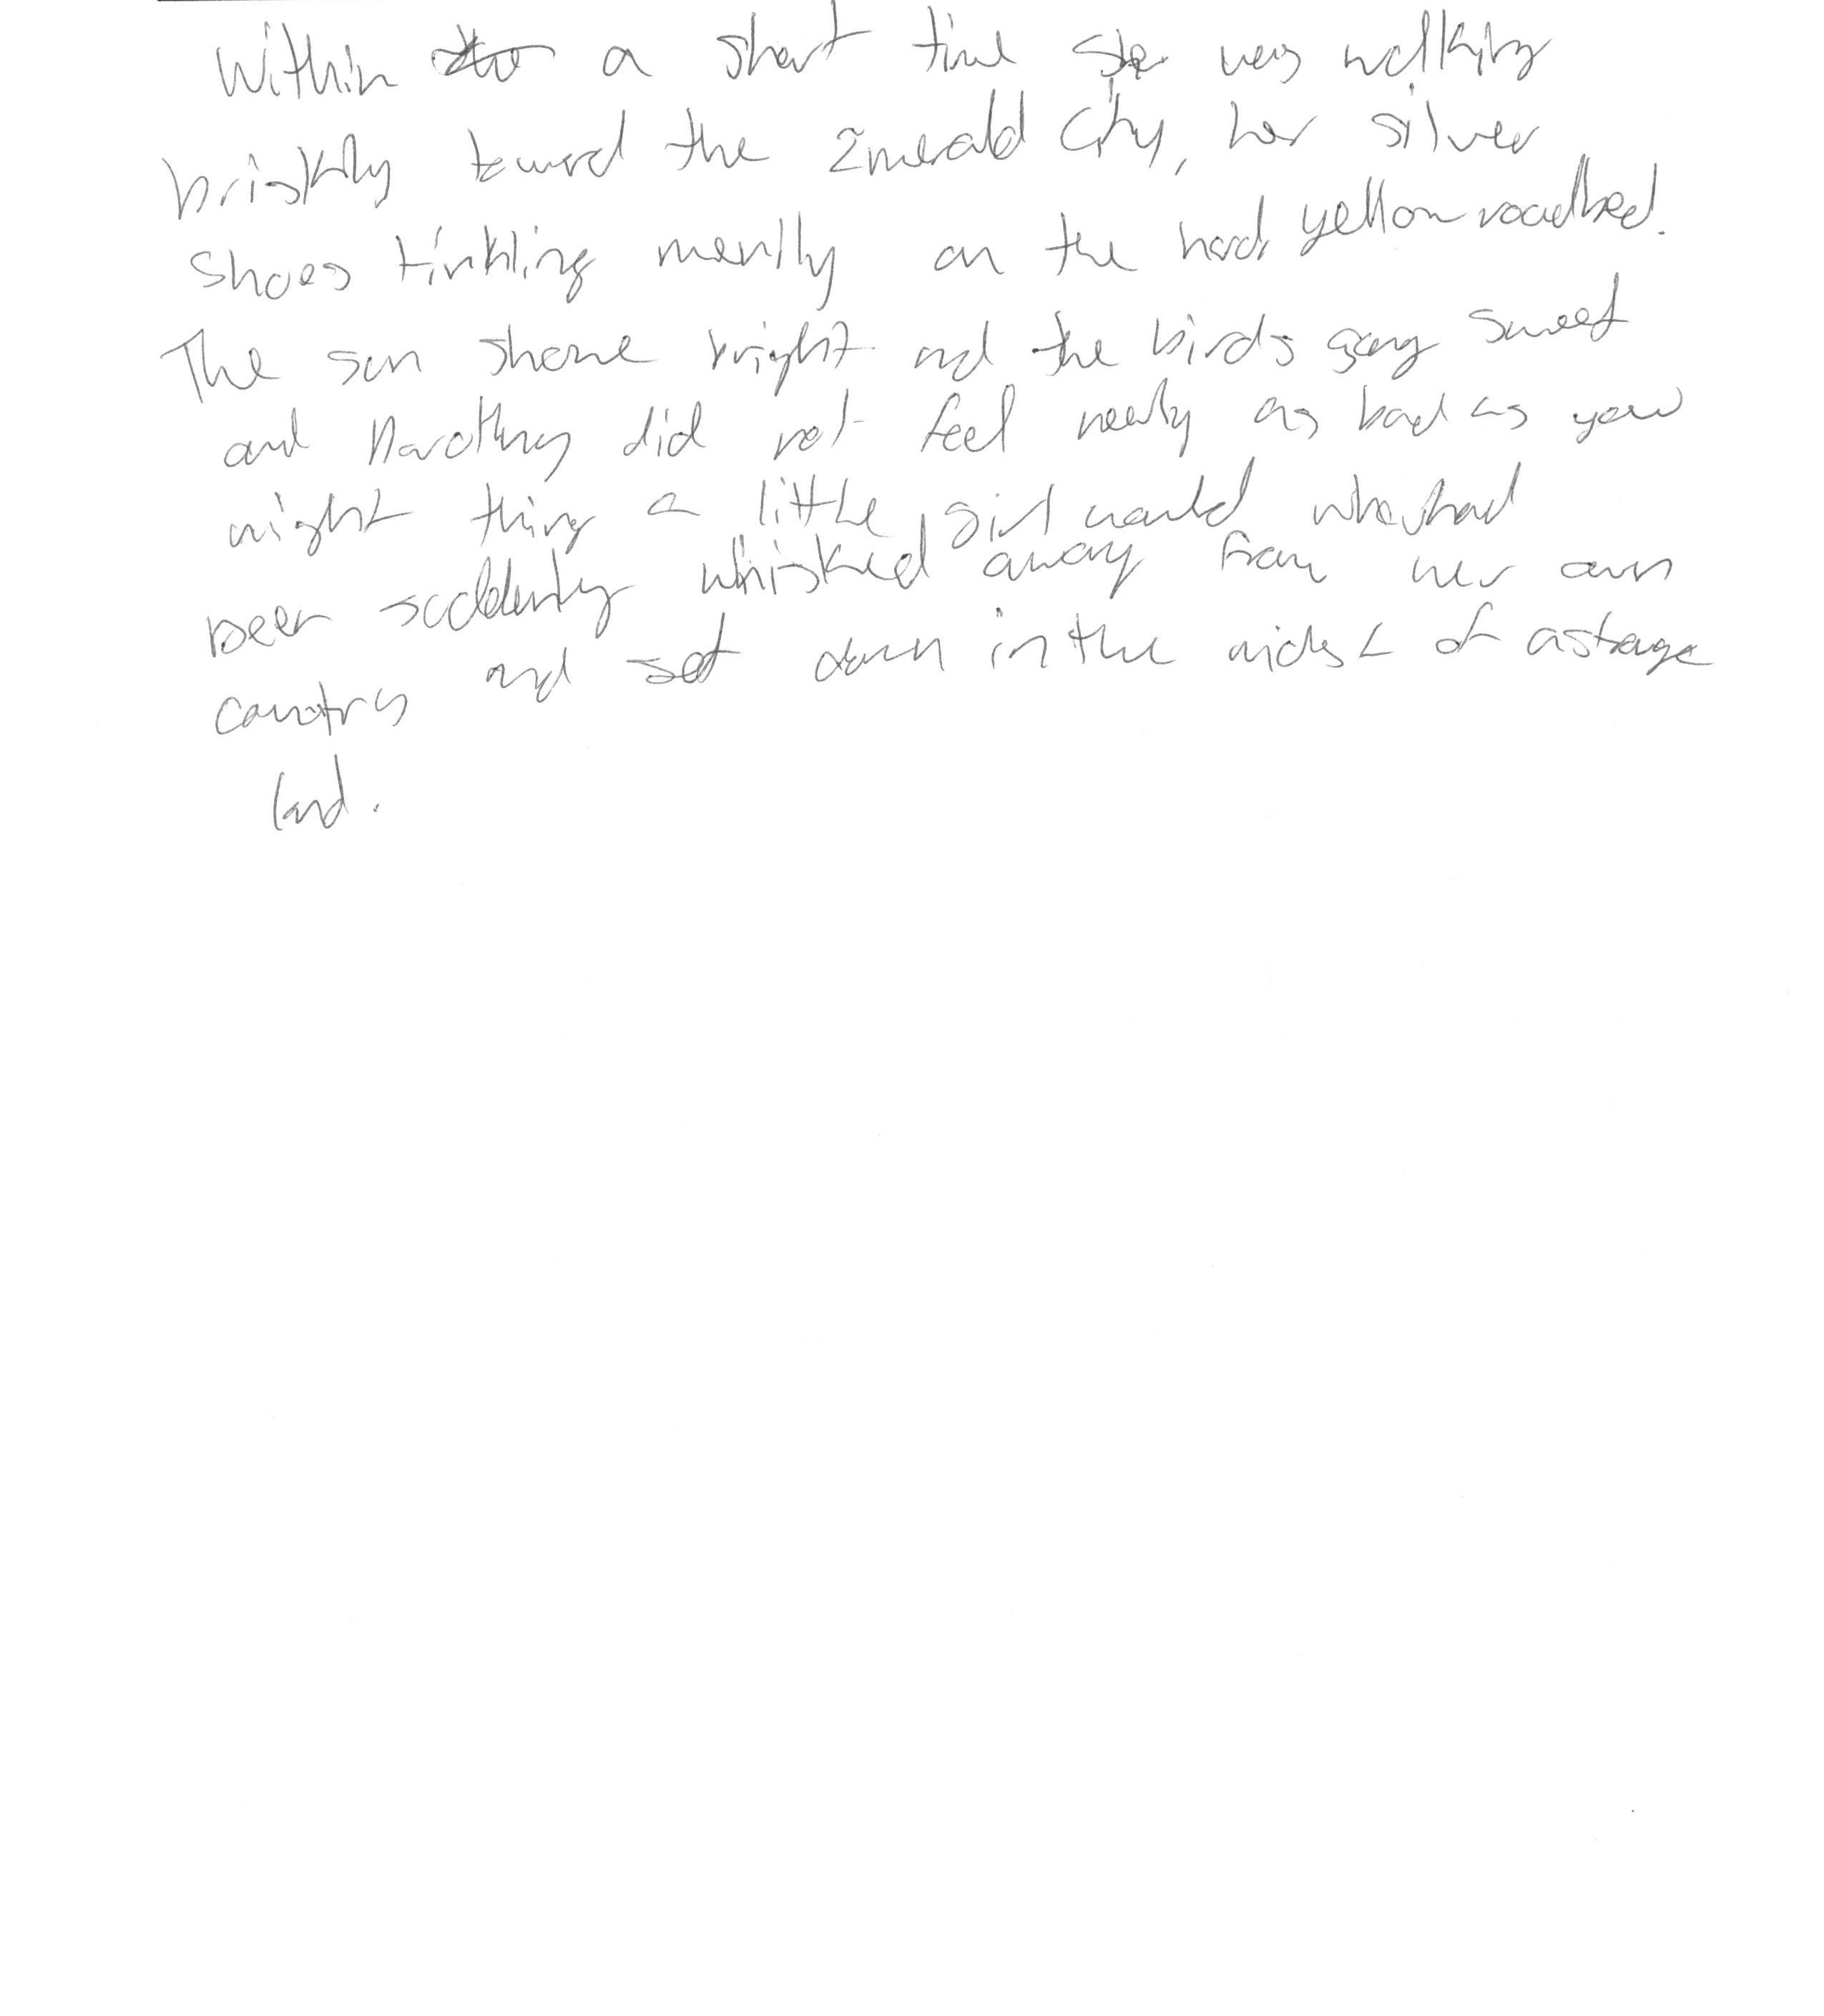 Within a short time she was walking
briskly toward the Emerald City, her silver
shoes tinkling merrily on the hard, yellow roadbed.
The sun shone bright and the birds sang sweet
and Dorothy did not feel nearly as bad as you
might thing a little girl would who had
been suddenly whisked away from her own
country and set down in the midst of a strange
land.